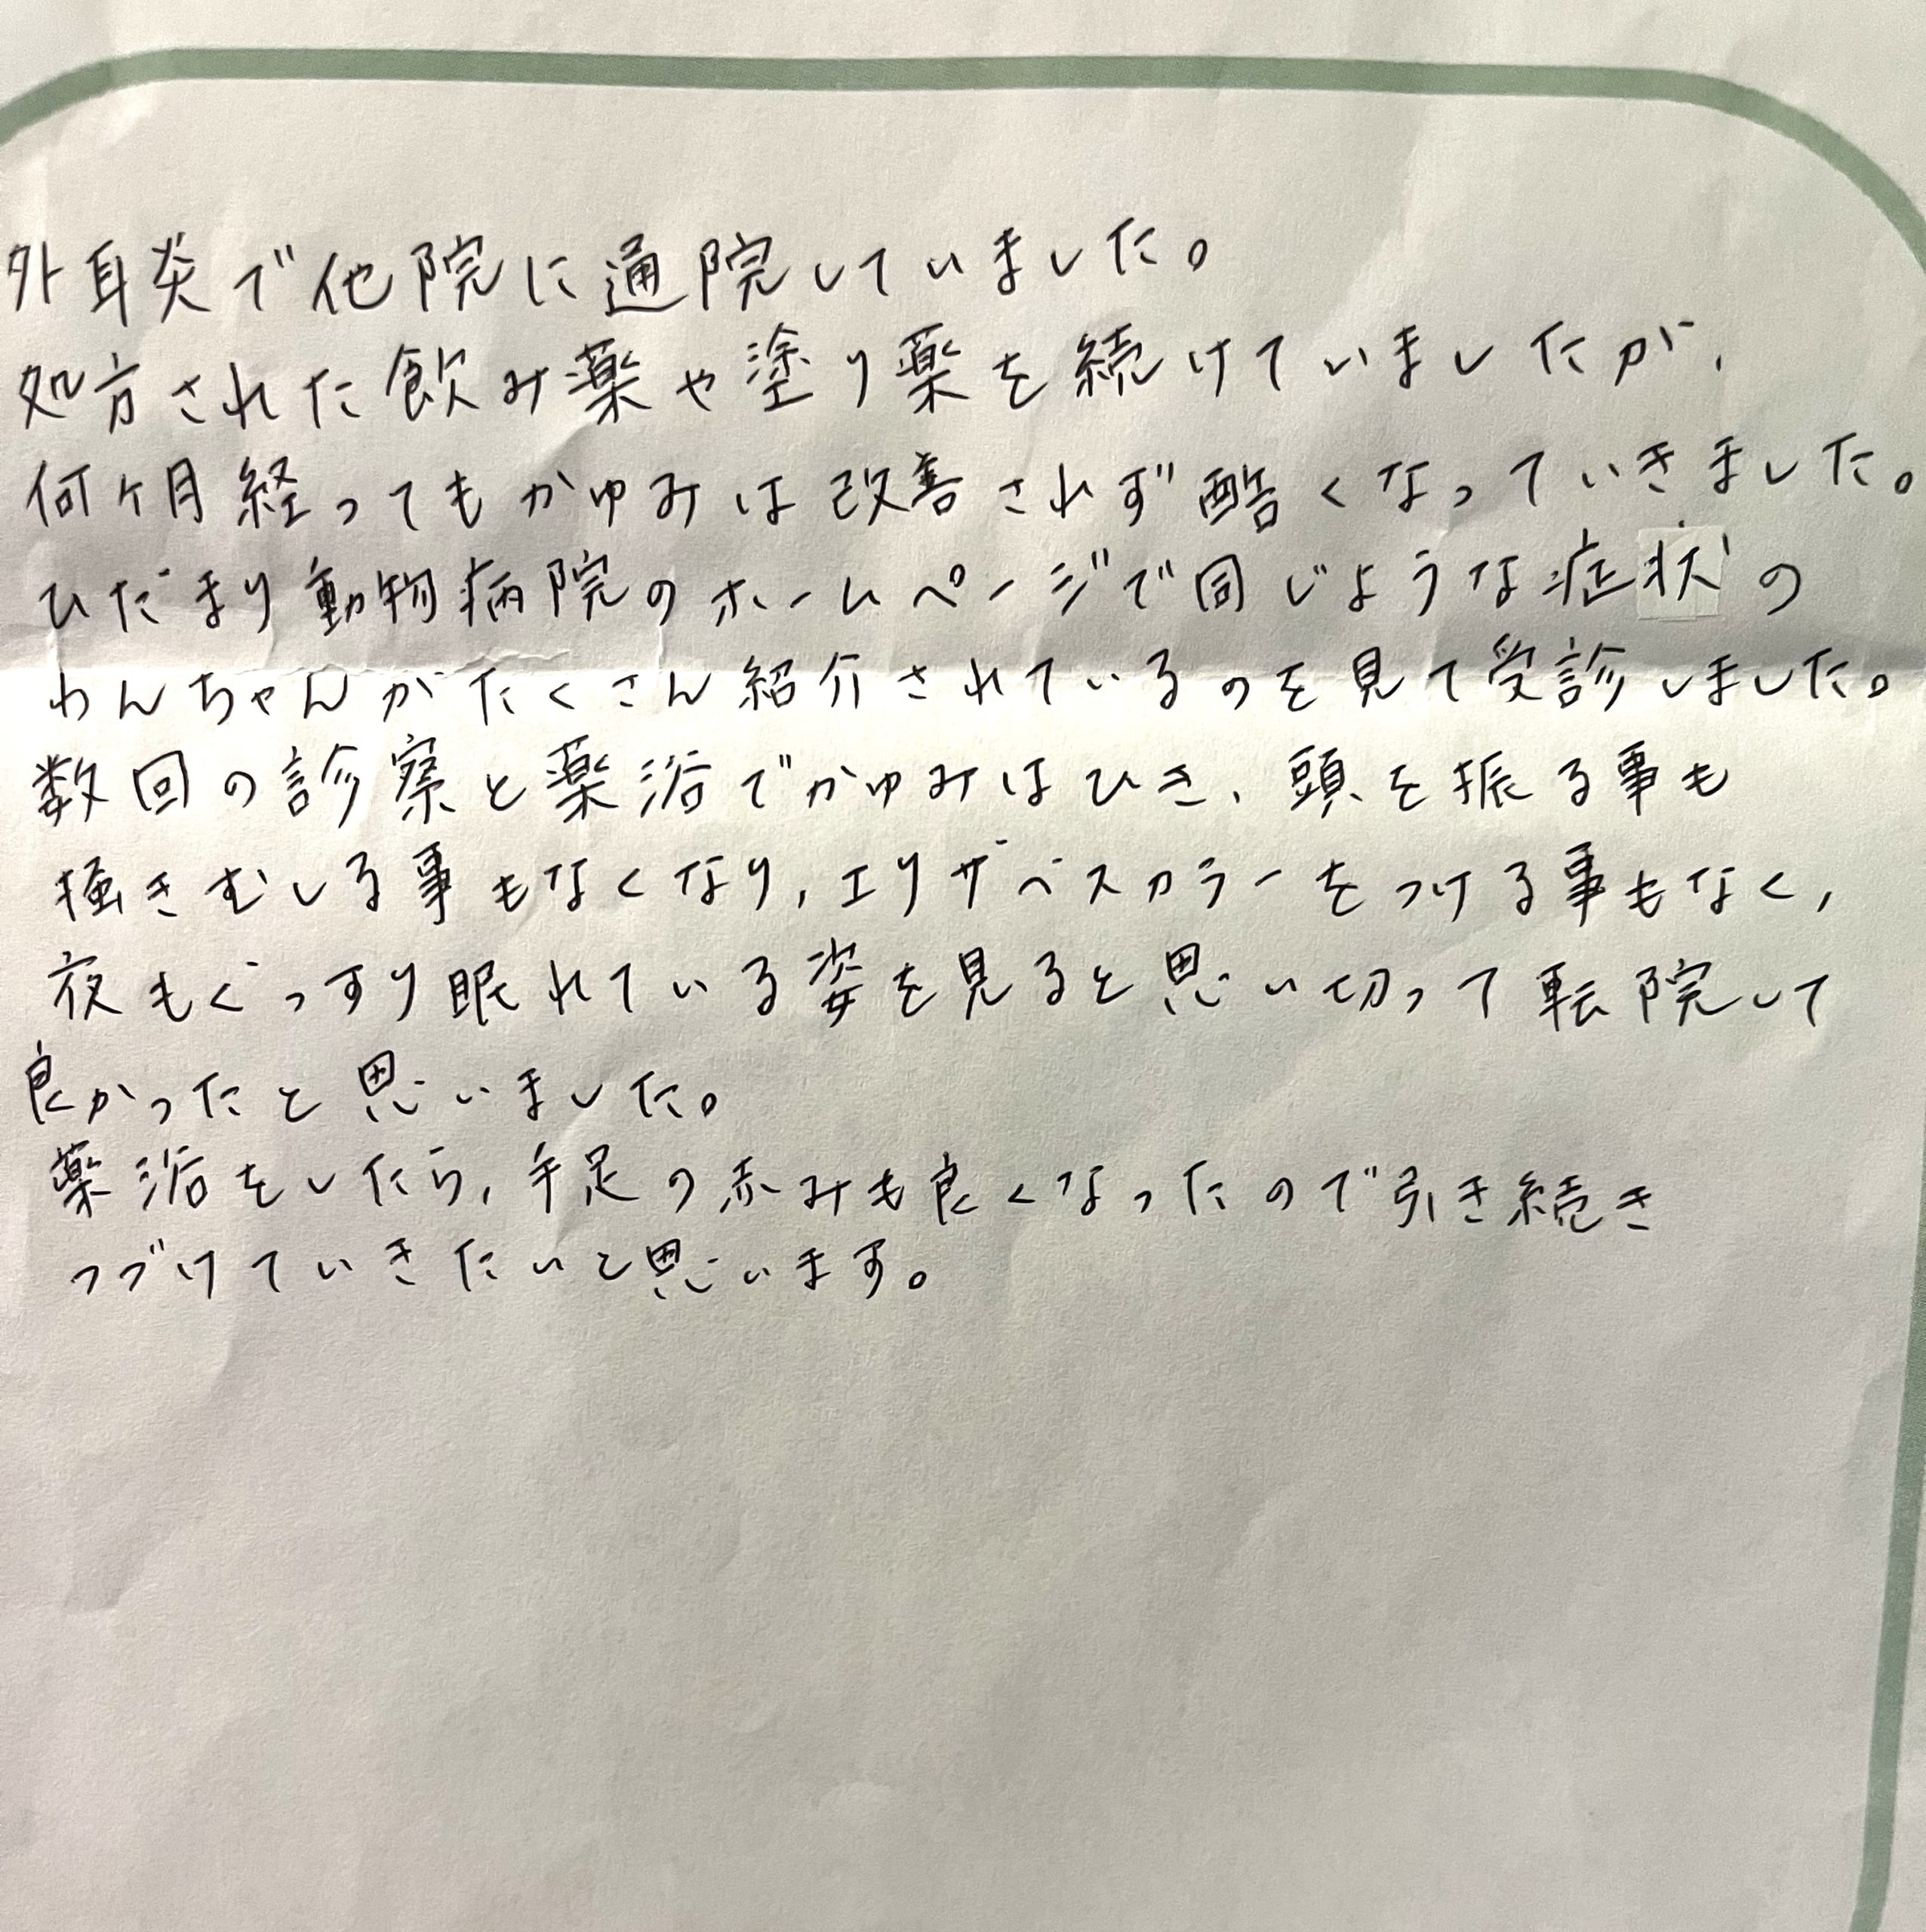 外耳炎で他院に通院していました。
処方された飲み薬や塗り薬を続けていましたが、
何ヶ月経ってもかゆみは改善されず酷くなっていきました。
ひだまり動物病院のホームページで同じような症状の
わんちゃんがたくさん紹介されているのを見て受診しました。
数回の診察と薬浴でかゆみはひき、頭を振る事も
掻きむしる事もなくなり、エリザベスカラーをつける事もなく、
夜もぐっすり眠れている姿を見ると思い切って転院して
良かったと思いました。
薬浴をしたら、手足の赤みも良くなったので引き続き
つづけていきたいと思います。